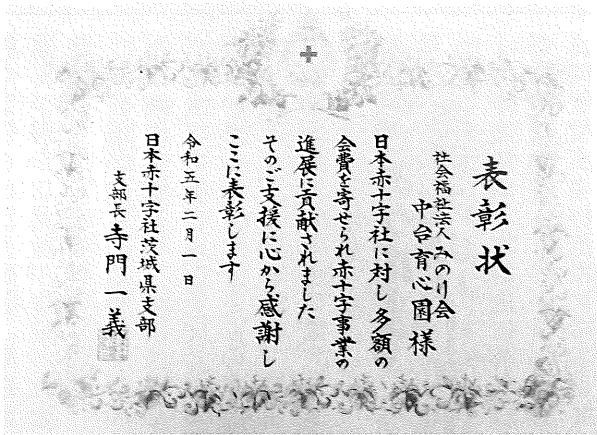 表彰状
社会福祉法人みのり会
中台育心園様
日本赤十字社に対し多額の
会費を寄せられ赤十字事業の
進展に貢献されました
そのご支援に心から感謝し
ここに表彰します
令和五年二月一日
日本赤十字社茨城県支部
支部長 寺門一義